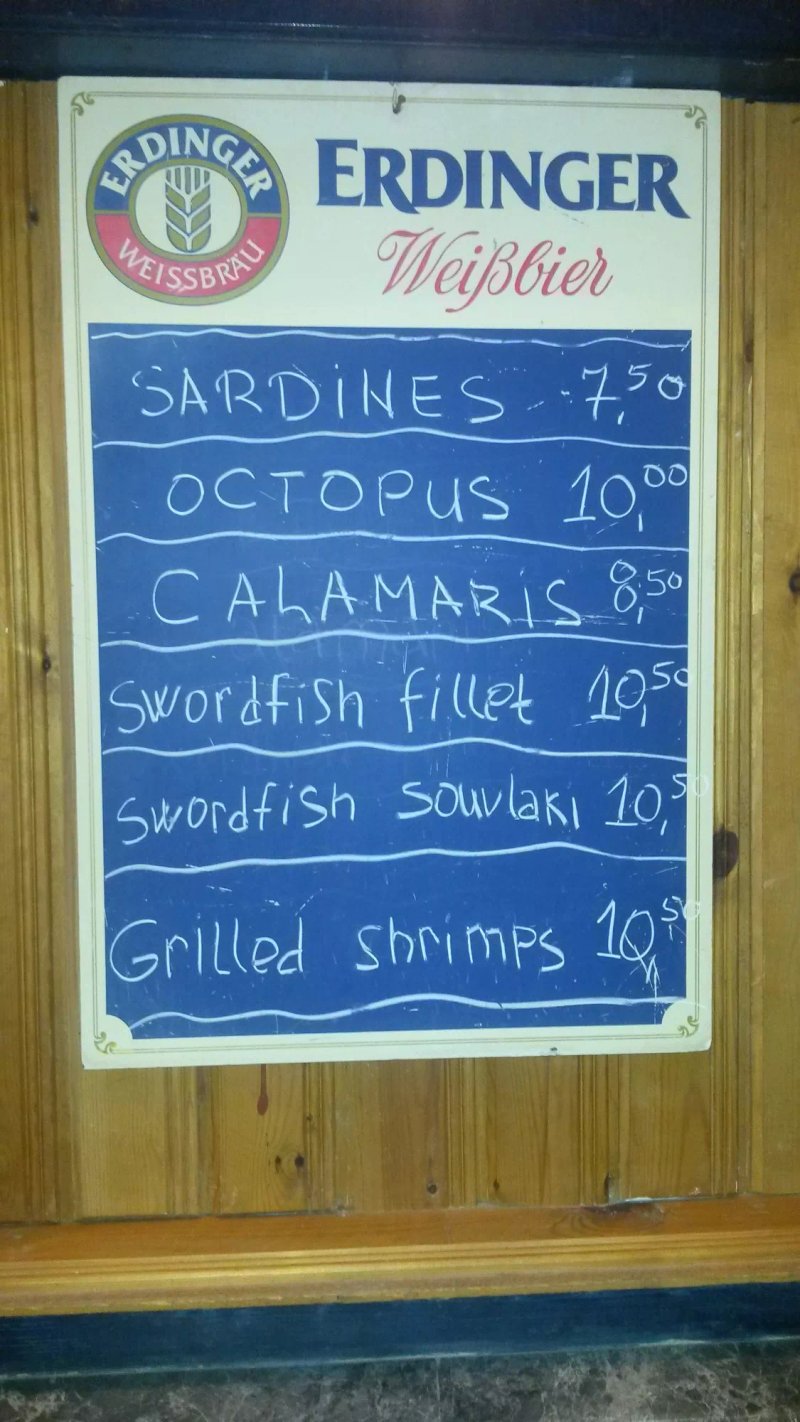 ERDINGER
WEISSBRÄU
ERDINGER
Weißbier
SARDINES 7,50
OCTOPUS 10,00
CALAMARIS 8,50
Swordfish fillet 10,50
Swordfish souvlaki 10,50
Grilled shrimps 10,50